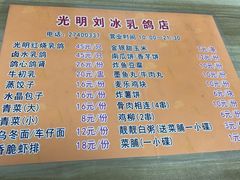 光明刘冰乳鸽店
电话：27400333 营业时间 10:00-21:30
光明红烧乳鸽 45元/只
卤水乳鸽 45元/只
鸽心鸽肾 76元/份
牛初乳 20元
蒸饺子 16元/份
水晶包子 16元/份
青菜(大) 18元
青菜(小) 12元
乌冬面 车仔面 12元/份
香脆虾排 18元/份
金银甜玉米
南瓜饼
炸鱼豆腐
墨鱼丸 牛肉丸
麦乐鸡块
炸薯条
骨肉相连(4串)
鸡柳(2串)
靓靓白粥(送菜脯一小碟)
菜脯(一小碟)